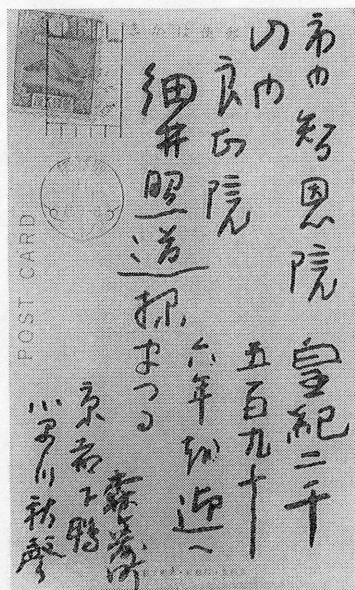 市内智恩院
山内
良正院
細井照道様
皇紀二千
五百九十
六年越迎へ
まつる
京都下鴨
小早川秋聲
POST CARD